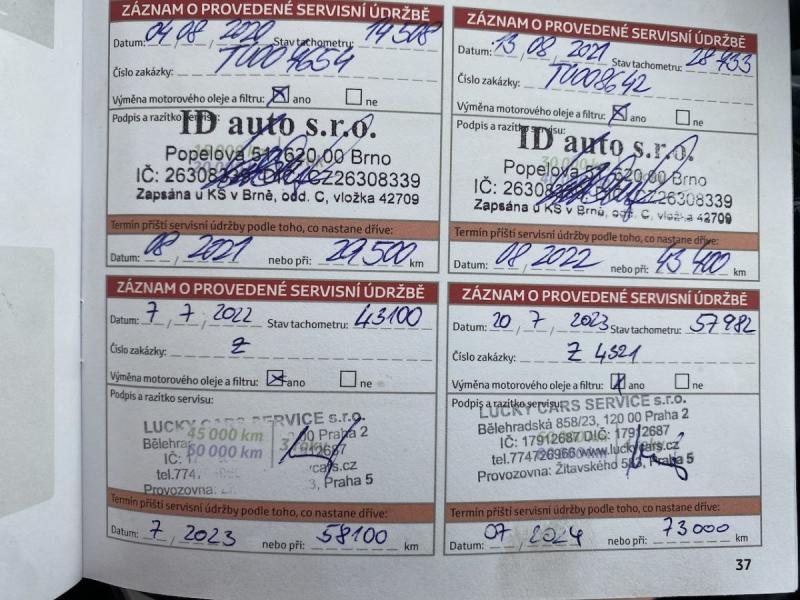 ZÁZNAM O PROVEDENÉ SERVISNÍ ÚDRŽBĚ
Datum: 04/08/2020 Stav tachometru: 14 508
Číslo zakázky: T0007654
Výměna motorového oleje a filtru: ☒ ano ☐ ne
Podpis a razítko servisu:
ID auto s.r.o.
Popelova 620 00 Brno
IČ: 26308339
Zapsána u KS v Brně, odd. C, vložka 42709
Termín příští servisní údržby podle toho, co nastane dříve:
Datum: 08/2021 nebo při: 29 500 km
ZÁZNAM O PROVEDENÉ SERVISNÍ ÚDRŽBĚ
Datum: 13/08/2021 Stav tachometru: 28 433
Číslo zakázky: T0008642
Výměna motorového oleje a filtru: ☒ ano ☐ ne
Podpis a razítko servisu:
ID auto s.r.o.
Popelova 620 00 Brno
IČ: 26308339
Zapsána u KS v Brně, odd. C, vložka 42709
Termín příští servisní údržby podle toho, co nastane dříve:
Datum: 08/2022 nebo při: 43 400 km
ZÁZNAM O PROVEDENÉ SERVISNÍ ÚDRŽBĚ
Datum: 7/7/2022 Stav tachometru: 43100
Číslo zakázky: Z
Výměna motorového oleje a filtru: ☒ ano ☐ ne
Podpis a razítko servisu:
LUCKY CARS SERVICE s.r.o.
00 Praha 2
45 000 km
60 000 km
IČ:
tel.774
Provozovna: Praha 5
Termín příští servisní údržby podle toho, co nastane dříve:
Datum: 7/2023 nebo při: 58100 km
ZÁZNAM O PROVEDENÉ SERVISNÍ ÚDRŽBĚ
Datum: 20/7/2023 Stav tachometru: 57982
Číslo zakázky: Z 4321
Výměna motorového oleje a filtru: ☒ ano ☐ ne
Podpis a razítko servisu:
LUCKY CARS SERVICE s.r.o.
Bělehradská 858/23, 120 00 Praha 2
IČ: 17912687 DIČ: 17912687
tel.774726966 www.luckycars.cz
Provozovna: Žitavského Praha 5
Termín příští servisní údržby podle toho, co nastane dříve:
Datum: 07/2024 nebo při: 73000 km
37